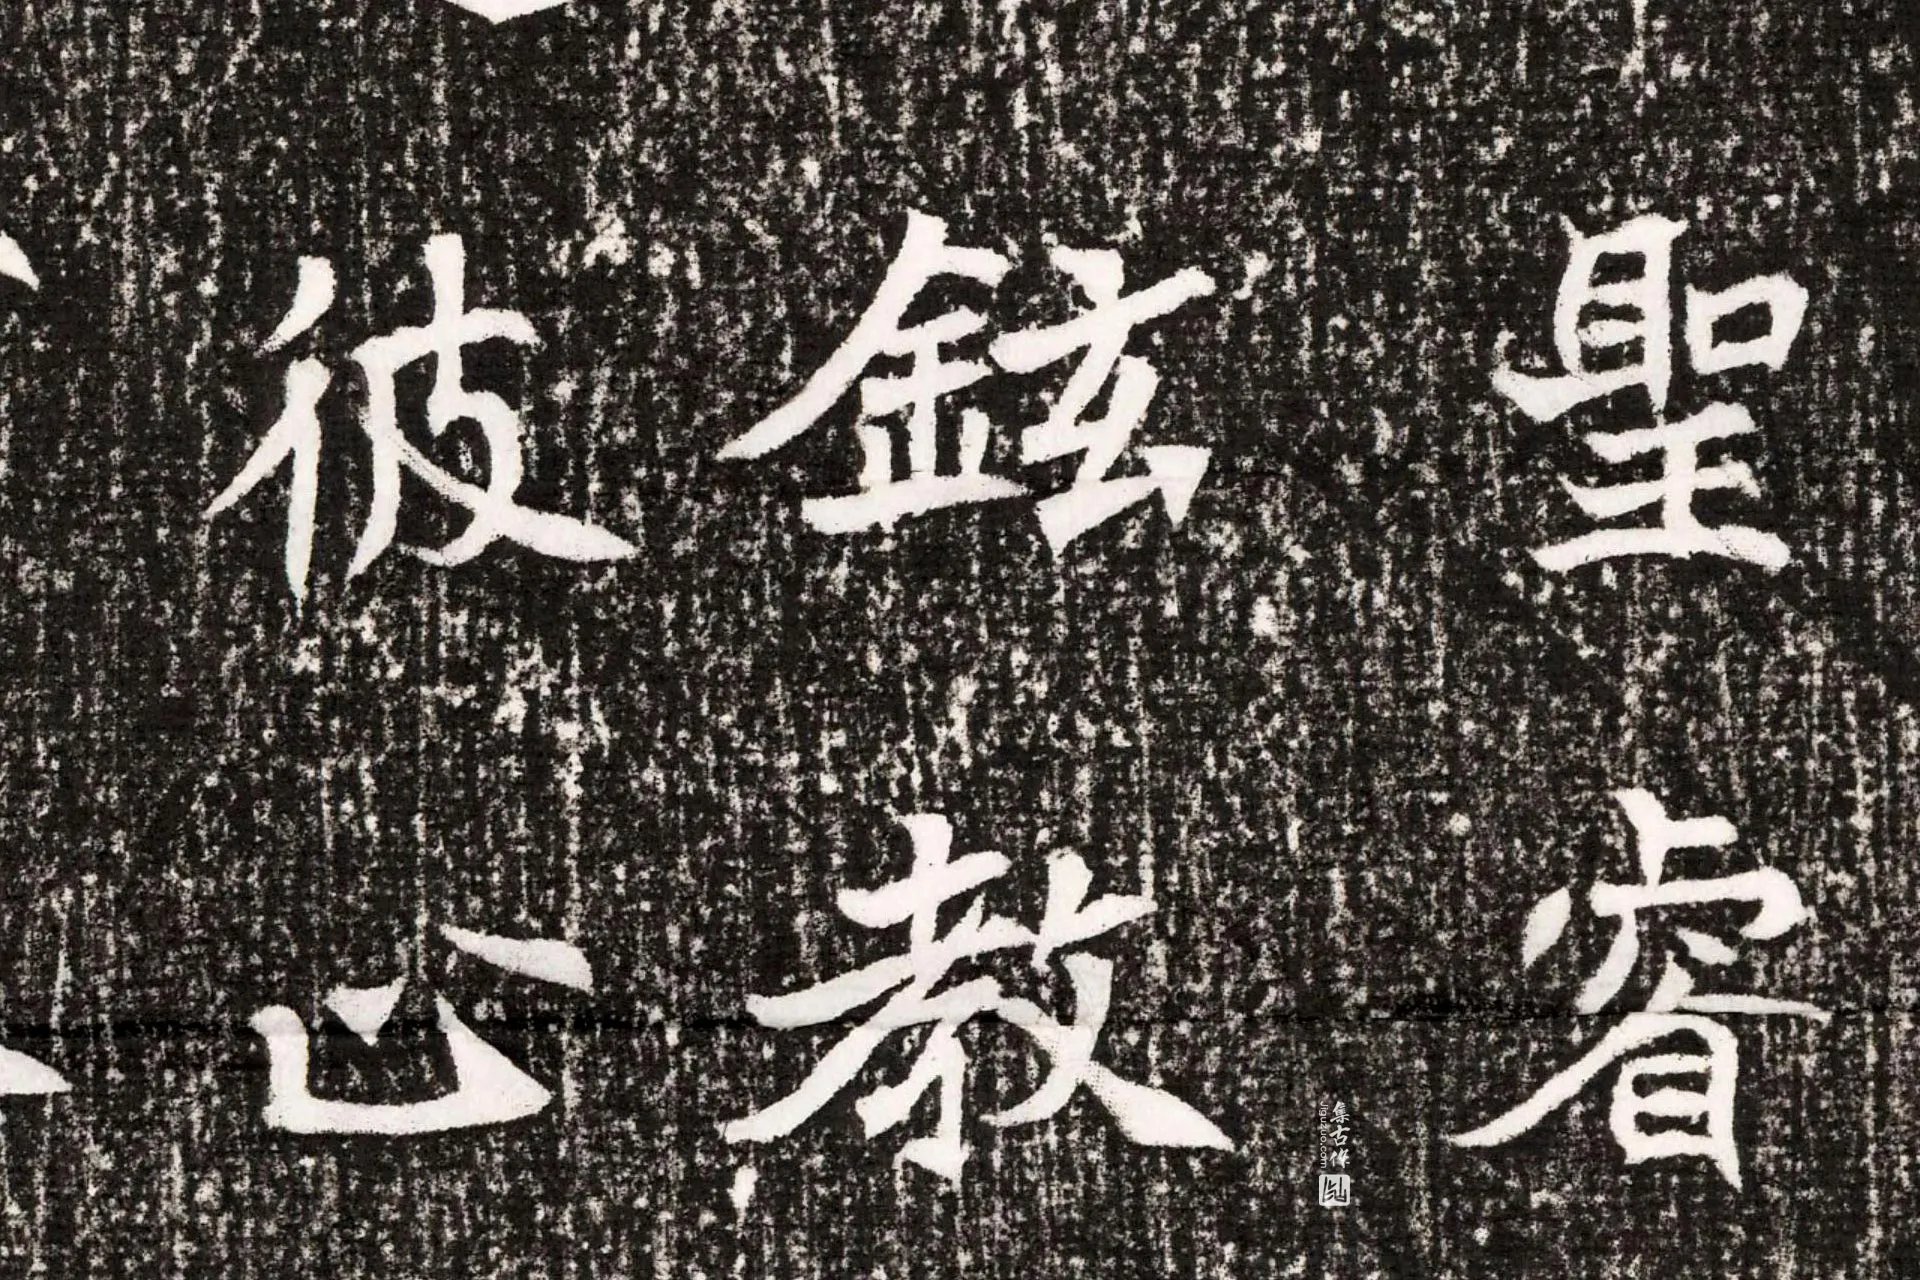 聖睿
鉉教
彼心
集古作
jiguzuo.com